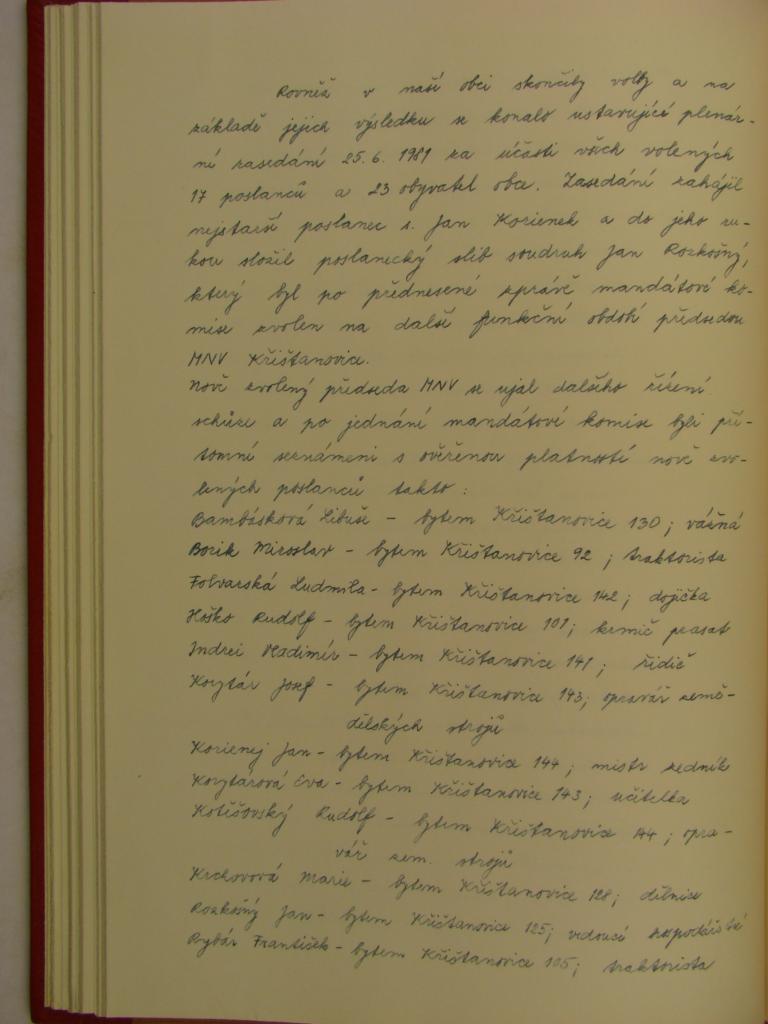 Rovněž v naší obci skončily volby a na
základě jejich výsledku se konalo ustavující plenár-
ní zasedání 25. 6. 1981 za účasti všech volených
17 poslanců a 23 obyvatel obce. Zasedání zahájil
nejstarší poslanec s. Jan Korienek a do jeho ru-
kou složil poslanecký slib soudruh Jan Rozkošný,
který byl po přednesené zprávě mandátové ko-
mise zvolen na další funkční období předsedou
MNV Křišťanovice.
Nově zvolený předseda MNV se ujal dalšího řízení
schůze a po jednání mandátové komise byli pří-
tomní seznámeni s ověřenou platností nově zvo-
lených poslanců takto:
Bambásková Libuše - bytem Křišťanovice 130; vážná
Borik Miroslav - bytem Křišťanovice 92; traktorista
Folvarská Ludmila - bytem Křišťanovice 142; dojička
Hoško Rudolf - bytem Křišťanovice 101; krmič prasat
Indrei Vladimír - bytem Křišťanovice 141; řidič
Korytár Josef - bytem Křišťanovice 143; opravář země-
dělských strojů
Korienej Jan - bytem Křišťanovice 144; mistr zedník
Korytárová Eva - bytem Křišťanovice 143; učitelka
Kotěšovský Rudolf - bytem Křišťanovice 144; opra-
vář zem. strojů
Krchovová Marie - bytem Křišťanovice 128; dělnice
Rozkošný Jan - bytem Křišťanovice 125; vedoucí hospodářství
Rybár František - bytem Křišťanovice 105; traktorista